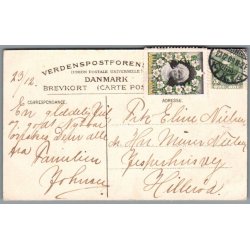 VERDENSPOSTFORENI
(UNION POSTALE UNIVERSELLE)
DANMARK
BREVKORT (CARTE POS
23/12.
CORRESPONDANCE:
ADRESSE:
En glædelig Jul
og godt Nytaar
ønskes Dem alle
fra Familien
Johnsen
Frk Eline Nielsen
Hr Murer Nielsen
Jespershusvej
Hillerød